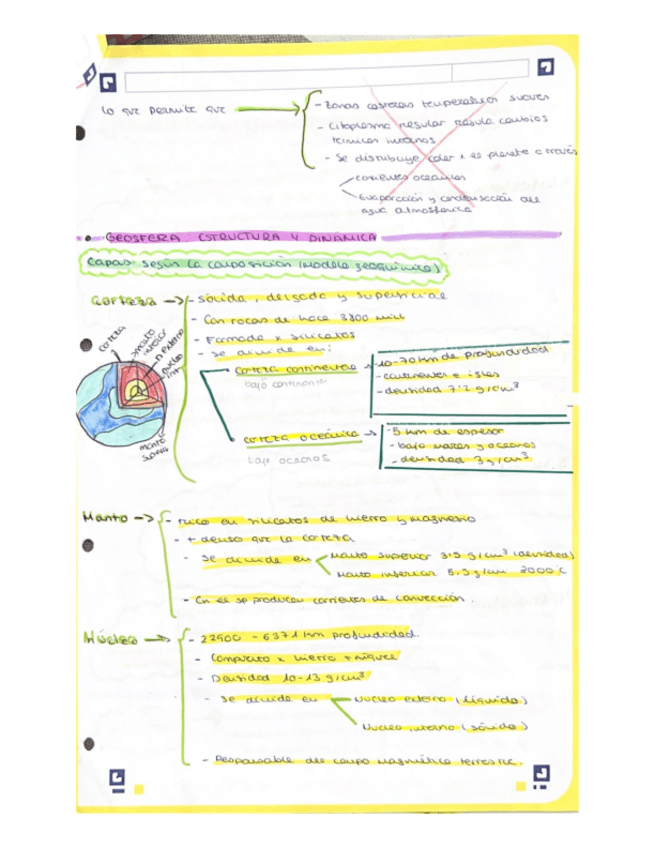 lo que permite que → - Zonas costeras temperaturas suaves
- Citoplasma regular regula cambios
térmicos internos
- Se distribuye calor x el planeta a través
corrientes oceánicas
Evaporación y condensación del
agua atmosférica
• GEOSFERA ESTRUCTURA Y DINÁMICA
Capas según la composición (modelo geoquímico)
Corteza → - Sólida, delgada y superficial
- Con rocas de hace 3800 mill
- Formada x silicatos
- Se divide en:
corteza continental → - 10-70 km de profundidad
bajo continente
- continentes e islas
- densidad 2'7 g/cm³
corteza oceánica → - 5 km de espesor
bajo oceanos
- bajo mares y oceanos
- densidad 3 g/cm³
corteza
manto inferior
n. externo
nucleo int.
manto super.
Manto → - rico en silicatos de hierro y magnesio
- + denso que la corteza
- Se divide en < Manto superior 3.5 g/cm³ (densidad)
Manto inferior 5.5 g/cm 3000ºC
- En el se producen corrientes de convección.
Núcleo → - 22900 - 6371 km profundidad.
- Compuesto x hierro + níquel
- Densidad 10-13 g/cm³
- Se divide en < Nucleo externo (líquido)
Nucleo interno (sólido)
- Responsable del campo magnético terrestre.